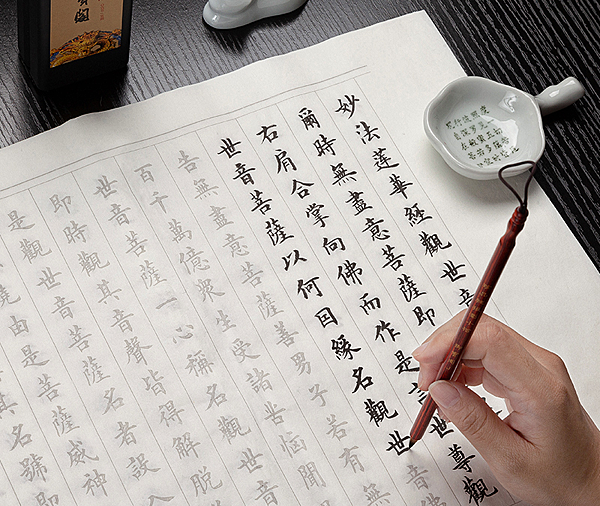 妙法蓮華經觀世音
爾時無盡意菩薩即
右肩合掌向佛而作是言世尊觀
世音菩薩以何因緣名觀世音佛
告無盡意菩薩善男子若有無
百千萬億眾生受諸苦惱聞
世音菩薩一心稱名觀世音
即時觀其音聲皆得解脫
是觀世音菩薩名者設入
燒由是菩薩威神
其名號即
寶閣